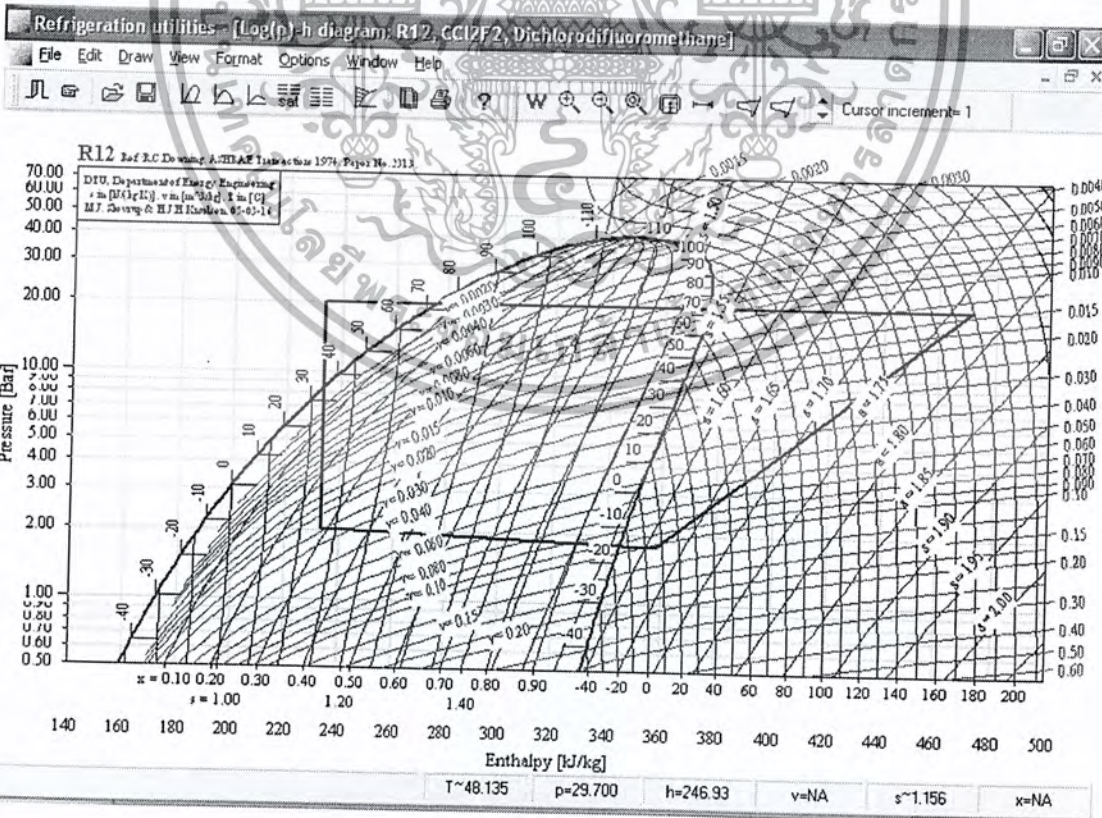 Refrigeration utilities - [Log(p)-h diagram: R12, CCl2F2, Dichlorodifluoromethane]
File Edit Draw View Format Options Window Help
Cursor increment= 1
R12 Ref: R.C. Downing. ASHRAE Transactions 1974. Paper No. 2313.
DTU, Department of Energy Engineering
s in [kJ/(kg K)]. v in [m^3/kg]. T in [C]
M.J. Skovrup & H.J.H Knudsen. 05-03-14
Pressure [Bar]
70.00
60.00
50.00
40.00
30.00
20.00
10.00
9.00
8.00
7.00
6.00
5.00
4.00
3.00
2.00
1.00
0.90
0.80
0.70
0.60
0.50
0.0015 0.0020 0.0030
0.0040
0.0050
0.0060
0.0070
0.0080
0.0090
0.010
0.015
0.020
0.030
0.040
0.050
0.060
0.070
0.080
0.090
0.10
0.15
0.20
0.30
0.40
0.50
0.60
-40 -30 -20 -10 0 10 20 30 40 50 60 70 80 90 100 110
110 100 90 80 70 60 50 40 30 20 10 0 -10 -20 -30 -40
v= 0.0020
v= 0.0030
v= 0.0040
v= 0.0060
v= 0.0080
v= 0.010
v= 0.015
v= 0.020
v= 0.030
v= 0.040
v= 0.060
v= 0.080
v= 0.10
v= 0.15
v= 0.20
s = 1.50
s = 1.55
s = 1.60
s = 1.65
s = 1.70
s = 1.75
s = 1.80
s = 1.85
s = 1.90
s = 1.95
s = 2.00
x = 0.10 0.20 0.30 0.40 0.50 0.60 0.70 0.80 0.90 -40 -20 0 20 40 60 80 100 120 140 160 180 200
s = 1.00 1.20 1.40
140 160 180 200 220 240 260 280 300 320 340 360 380 400 420 440 460 480 500
Enthalpy [kJ/kg]
T~48.135 p=29.700 h=246.93 v=NA s~1.156 x=NA